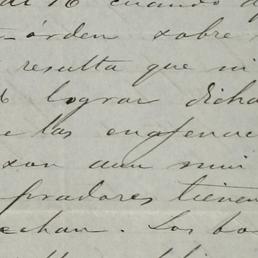 al 16 cuando
órden sobre
resulta que ni
lograr dicha
e las enagenac
xon aun mui
pradores tienen
echan. Los bo